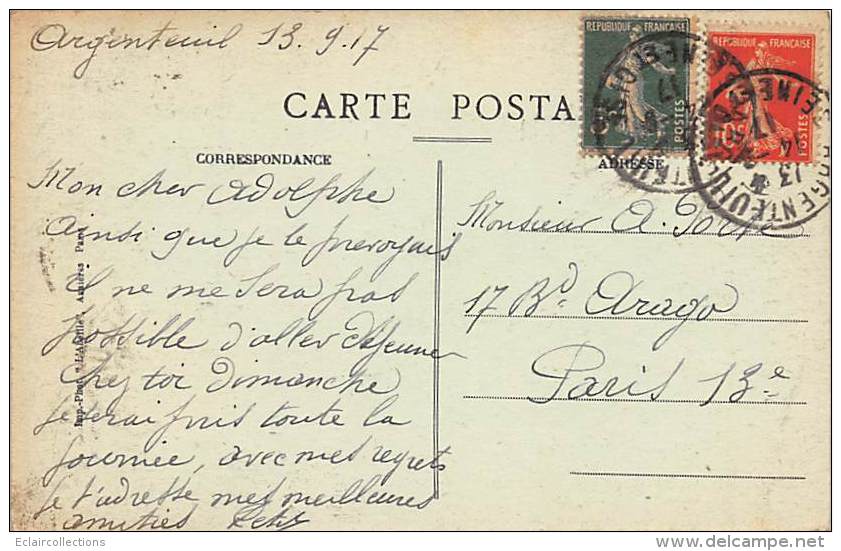 Argenteuil 13.9.17
REPUBLIQUE FRANÇAISE
POSTES
REPUBLIQUE FRANÇAISE
POSTES
10
ARGENTEUIL
SEINE-ET-OISE
CARTE POSTA
CORRESPONDANCE
ADRESSE
Mon cher Adolphe
Ainsi que je le prévoyais
il ne me sera pas
possible d'aller déjeuner
chez toi Dimanche
je serai pris toute la
journée, avec mes regrets
je t'adresse mes meilleures
amitiés
Monsieur A.
17 Bd. Arago
Paris 13e
Imp.-Phot. "L'Abeille", Asnières Paris
Eclaircollections
www.delcampe.net